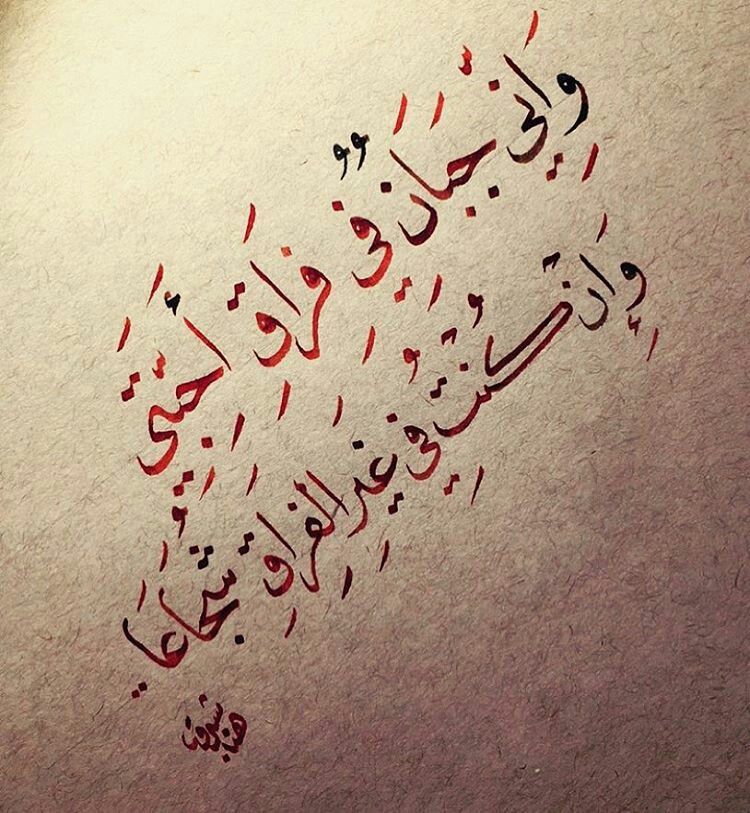 وَإِنِّي جَبَانٌ فِي فِرَاقِ أَحِبَّتِي
وَإِنْ كُنْتُ فِي غَيْرِ الْفِرَاقِ شُجَاعَا